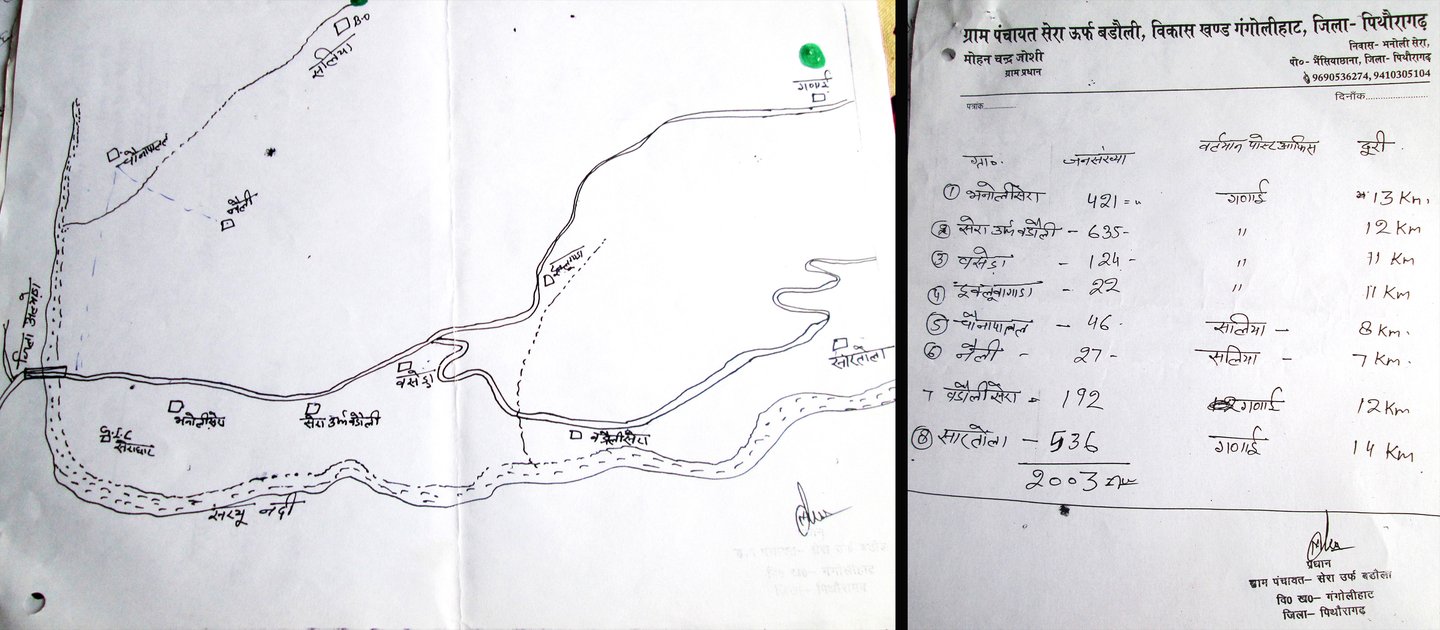 B.O
सलिया
गणाई
चौनापातल
नैली
जिला अल्मोड़ा
बसेड़ा
सारतोला
भनोलीसेरा
सेरा उर्फ बडौली
G.I.C
सेराघाट
बडौलीसेरा
सरयू नदी
ग्राम पंचायत सेरा ऊर्फ बडौली, विकास खण्ड गंगोलीहाट, जिला- पिथौरागढ़
मोहन चन्द्र जोशी
ग्राम प्रधान
निवास- भनोली सेरा,
पो०- भैंसियाछाना, जिला- पिथौरागढ़
9690536274, 9410305104
पत्रांक
दिनाँक
ग्रा०. जनसंख्या वर्तमान पोस्ट आफिस दूरी
① भनोलीसेरा 421 गणाई 13 Km.
② सेरा उर्फ बडौली - 635 - " 12 Km
③ बसेड़ा - 124 - " 11 Km
④ - 22 " 11 Km
⑤ चौनापातल - 46 सलिया - 8 Km.
⑥ नैली - 27 - सलिया - 7 Km.
7 बडौलीसेरा - 192 गणाई 12 Km
⑧ सारतोला - 536 गणाई 14 Km
2003
प्रधान
ग्राम पंचायत- सेरा उर्फ बडौली
वि0 ख0- गंगोलीहाट
जिला- पिथौरागढ़